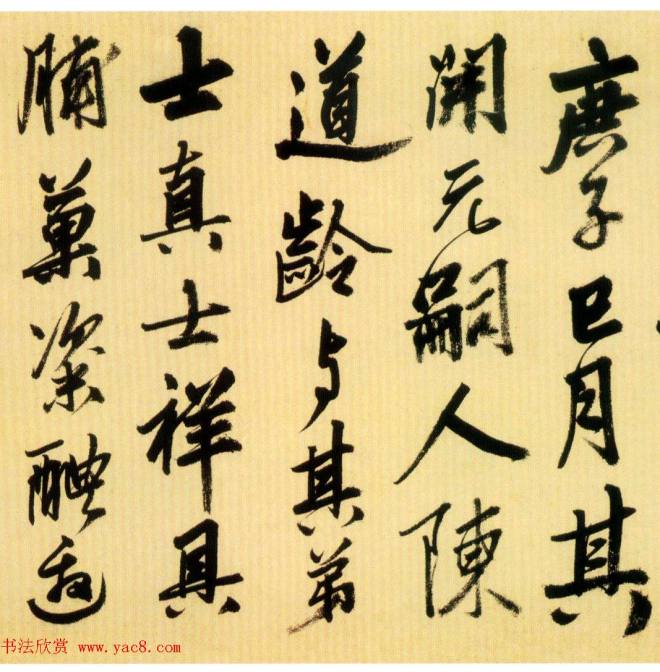 庚子巳月其
開元嗣人陳
道齡与其弟
士真士祥具
脯菓粢醴邀
书法欣赏 www.yac8.com